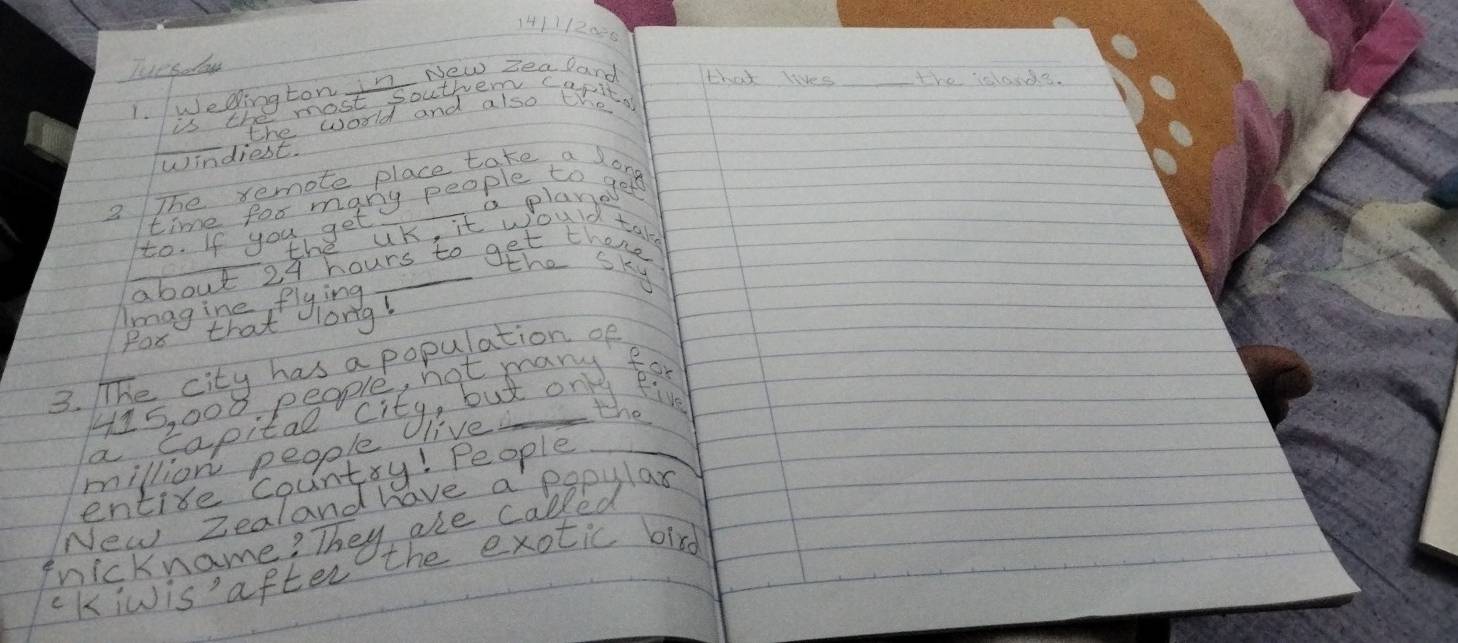 14/1/2020
Tuesday
1. Wellington in New Zealand
is the most southern capital
____ the world and also the
windiest.
2 The remote place take a long
time for many people to get
to. If you get ____ a plane
____ the UK, it would take
about 24 hours to get there
Imagine flying ____ the sky
for that long!
3. The city has a population of
415,000 people, not many for
a capital city, but only five
million people live ____ the
entire country! People ____
New Zealand have a popular
nickname? They are called
'Kiwis' after the exotic bird
that lives ____ the islands.